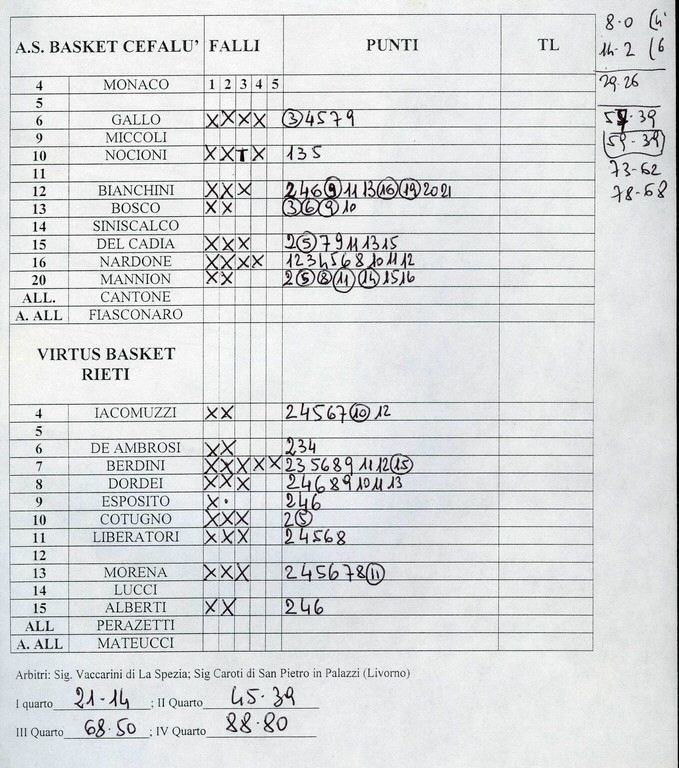 A.S. BASKET CEFALU' FALLI PUNTI TL
4 MONACO 1 2 3 4 5
5
6 GALLO X X X X 3 4 5 7 9
9 MICCOLI
10 NOCIONI X X T X 1 3 5
11
12 BIANCHINI X X X 2 4 6 9 11 13 16 19 20 21
13 BOSCO X X 3 6 9 10
14 SINISCALCO
15 DEL CADIA X X X 2 5 7 9 11 13 15
16 NARDONE X X X X 1 2 3 4 5 6 8 10 11 12
20 MANNION X X 2 5 8 11 14 15 16
ALL. CANTONE
A. ALL FIASCONARO
8-0 (4'
14-2 (6
29-26
57-39
59-39
73-62
78-68
VIRTUS BASKET
RIETI
4 IACOMUZZI X X 2 4 5 6 7 10 12
5
6 DE AMBROSI X X 2 3 4
7 BERDINI X X X X X 2 3 5 6 8 9 11 12 15
8 DORDEI X X X 2 4 6 8 9 10 11 13
9 ESPOSITO X · 2 4 6
10 COTUGNO X X X 2 5
11 LIBERATORI X X X 2 4 5 6 8
12
13 MORENA X X X 2 4 5 6 7 8 11
14 LUCCI
15 ALBERTI X X 2 4 6
ALL PERAZETTI
A. ALL MATEUCCI
Arbitri: Sig. Vaccarini di La Spezia; Sig Caroti di San Pietro in Palazzi (Livorno)
I quarto 21-14 ; II Quarto 45-39
III Quarto 68-50 ; IV Quarto 88-80